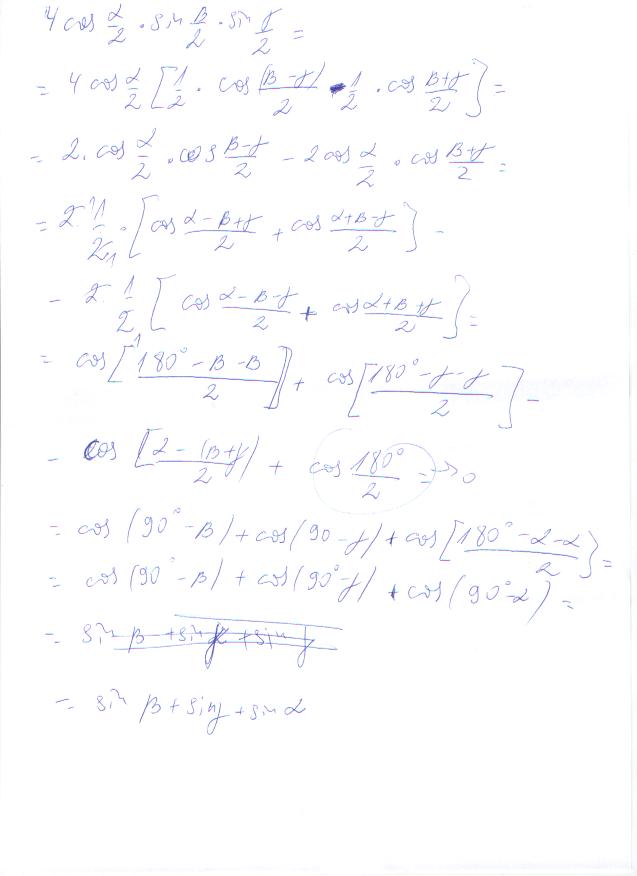 4 cos α/2 · sin β/2 · sin γ/2 =
= 4 cos α/2 [1/2 · cos (β-γ)/2 - 1/2 · cos (β+γ)/2] =
= 2 · cos α/2 · cos (β-γ)/2 - 2 cos α/2 · cos (β+γ)/2 =
= 2 · 1/2 · [cos (α-β+γ)/2 + cos (α+β-γ)/2] -
- 2 · 1/2 [cos (α-β-γ)/2 + cos (α+β+γ)/2] =
= cos [(180° - β - β)/2] + cos [(180° - γ - γ)/2] -
- cos [(α - (β+γ))/2] + cos 180°/2 = → 0
= cos (90° - β) + cos (90 - γ) + cos [(180° - α - α)/2] =
= cos (90° - β) + cos (90° - γ) + cos (90° - α) =
= sin β + sin γ + sin γ
= sin β + sin γ + sin α